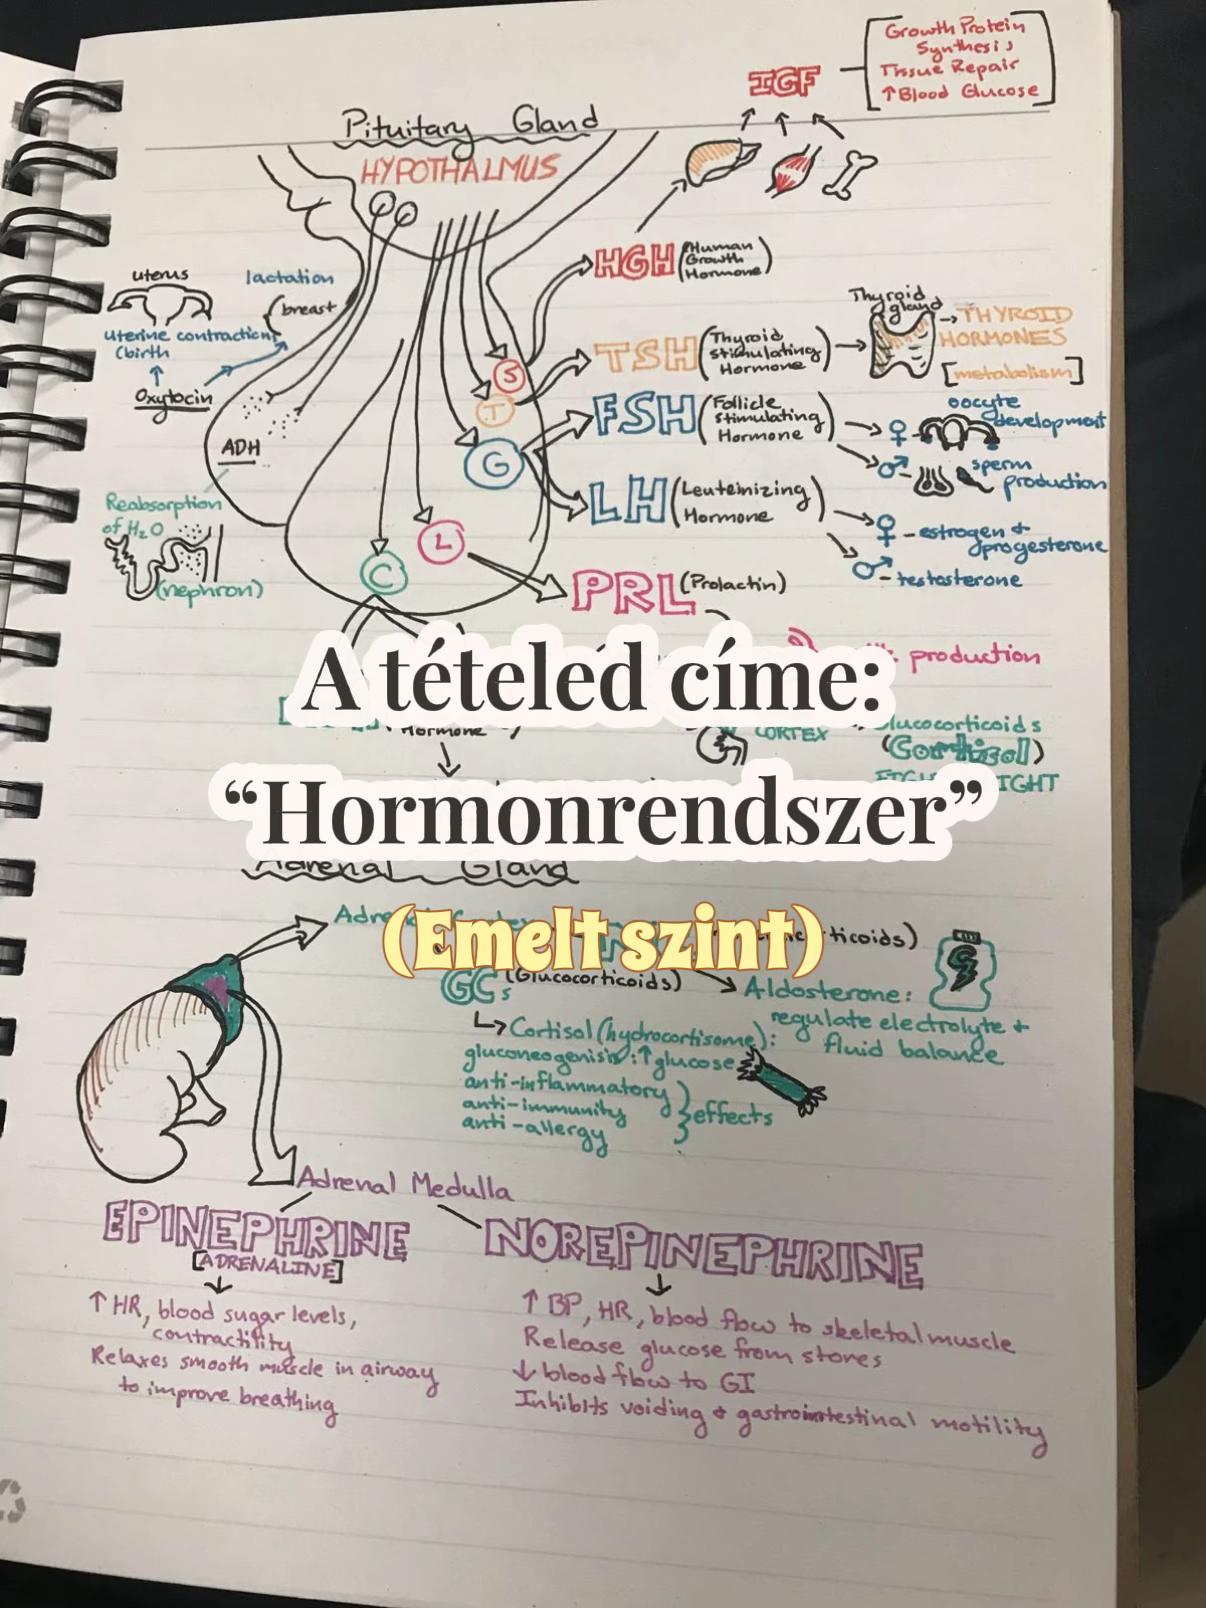 Growth Protein
Synthesis
Tissue Repair
↑ Blood Glucose
IGF
Pituitary Gland
HYPOTHALMUS
HGH (Human
Growth
Hormone)
uterus
lactation
(breast
uterine contraction
(birth
Oxytocin
ADH
Reabsorption
of H₂O
(nephron)
S
T
G
L
C
TSH (Thyroid
stimulating
Hormone)
Thyroid
gland
THYROID
HORMONES
[metabolism]
FSH (Follicle
stimulating
Hormone)
♀ - oocyte
development
♂ - sperm
production
LH (Leuteinizing
Hormone)
♀ - estrogen &
progesterone
♂ - testosterone
PRL (Prolactin)
production
A tételed címe:
Hormone
CORTEX
(Cortisol)
“Hormonrendszer”
Adrenal Gland
(Emelt szint)
GCs (Glucocorticoids)
Aldosterone:
regulate electrolyte &
fluid balance
Cortisol (hydrocortisome):
gluconeogenisis: ↑ glucose
anti-inflammatory
anti-immunity
anti-allergy
effects
Adrenal Medulla
EPINEPHRINE
[ADRENALINE]
↑ HR, blood sugar levels,
contractility
Relaxes smooth muscle in airway
to improve breathing
NOREPINEPHRINE
↑ BP, HR, blood flow to skeletal muscle
Release glucose from stores
↓ blood flow to GI
Inhibits voiding & gastrointestinal motility